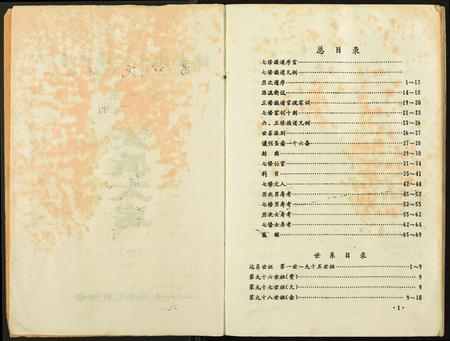 总目录
七修族谱序言
七修族谱凡例
历次谱序 1～13
源流新说 14～18
五修族谱家规家训 19～20
七修家训十则 21～23
六、五修族谱凡例 23～26
世系派别 26～27
谨刊圣谕一十六条 27～28
封典 29～30
七修仕宦 31～34
科目 35～41
七修文人 42～44
历次男寿考 45～52
七修男寿考 53～55
历次女寿考 55～62
七修女寿考 62～64
65～69
世系目录
远系世祖 第一世～九十五世祖 1～9
第九十六世祖(贵) 9
第九十七世祖(文) 9
第九十八世祖(金) 9～10
·1·